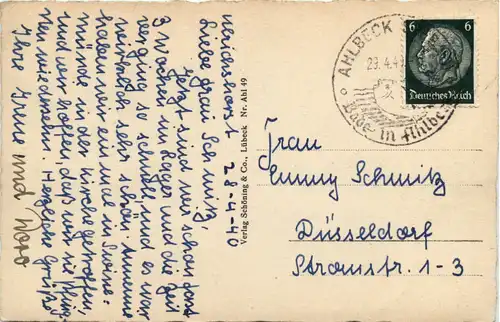 Heringsdorf 28-4-40
Liebe Frau Schmitz,
Jetzt sind wir schon fast
3 Wochen im Lager und die Zeit
verging so schnell und es war
wirklich sehr schön. Annemie
haben wir ein mal in Swine-
münde in der Kirche getroffen,
und wir hoffen, daß wir sie hier
wiedersehen. Herzliche Grüße
Ihre Irene und
Verlag Schöning & Co., Lübeck Nr. Ahl 49
AHLBECK
29.4.40
Bade in Ahlbeck
6 6
Deutsches Reich
Frau
Emmy Schmitz
Düsseldorf
Stromstr. 1-3